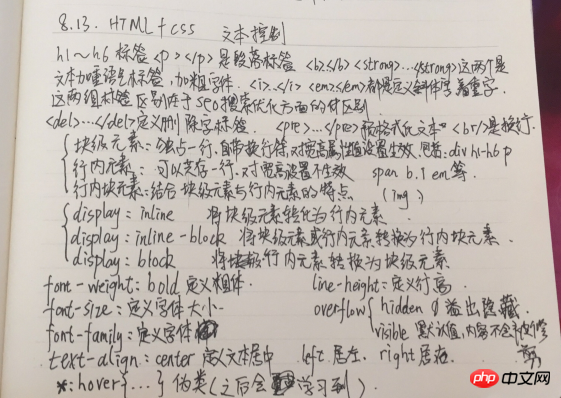 8.13. HTML+css 文本控制
h1~h6 标签 <p></p> 是段落标签 <b></b> <strong>...</strong> 这两个是
文本加重语气标签,加粗字体. <i>..</i> <em></em>都是定义斜体字 着重字.
这两组标签 区别在于 seo搜索优化方面的区别
<del>...</del>定义删除字标签. <pre>...</pre> 预格式化文本. <br/>是换行.
块级元素: 独占一行,自带换行符,对宽高属性值设置生效. 包括: div h1-h6 p
行内元素: 可以共存一行,对宽高设置不生效 span b.i em等
行内块元素: 结合块级元素与行内元素的特点 (img)
display: inline 将块级元素转化为行内元素.
display: inline-block 将块级元素或行内元素转换为行内块元素.
display: block 将行内元素转换为块级元素
font-weight: bold 定义粗体. line-height: 定义行高
font-size: 定义字体大小 overflow hidden 溢出隐藏
font-family: 定义字体 visible 默认值,内容不会被修剪
text-align: center 定义文本居中 left 居左. right 居右.
*:hover{...} 伪类(之后会学习到).
php 中文网